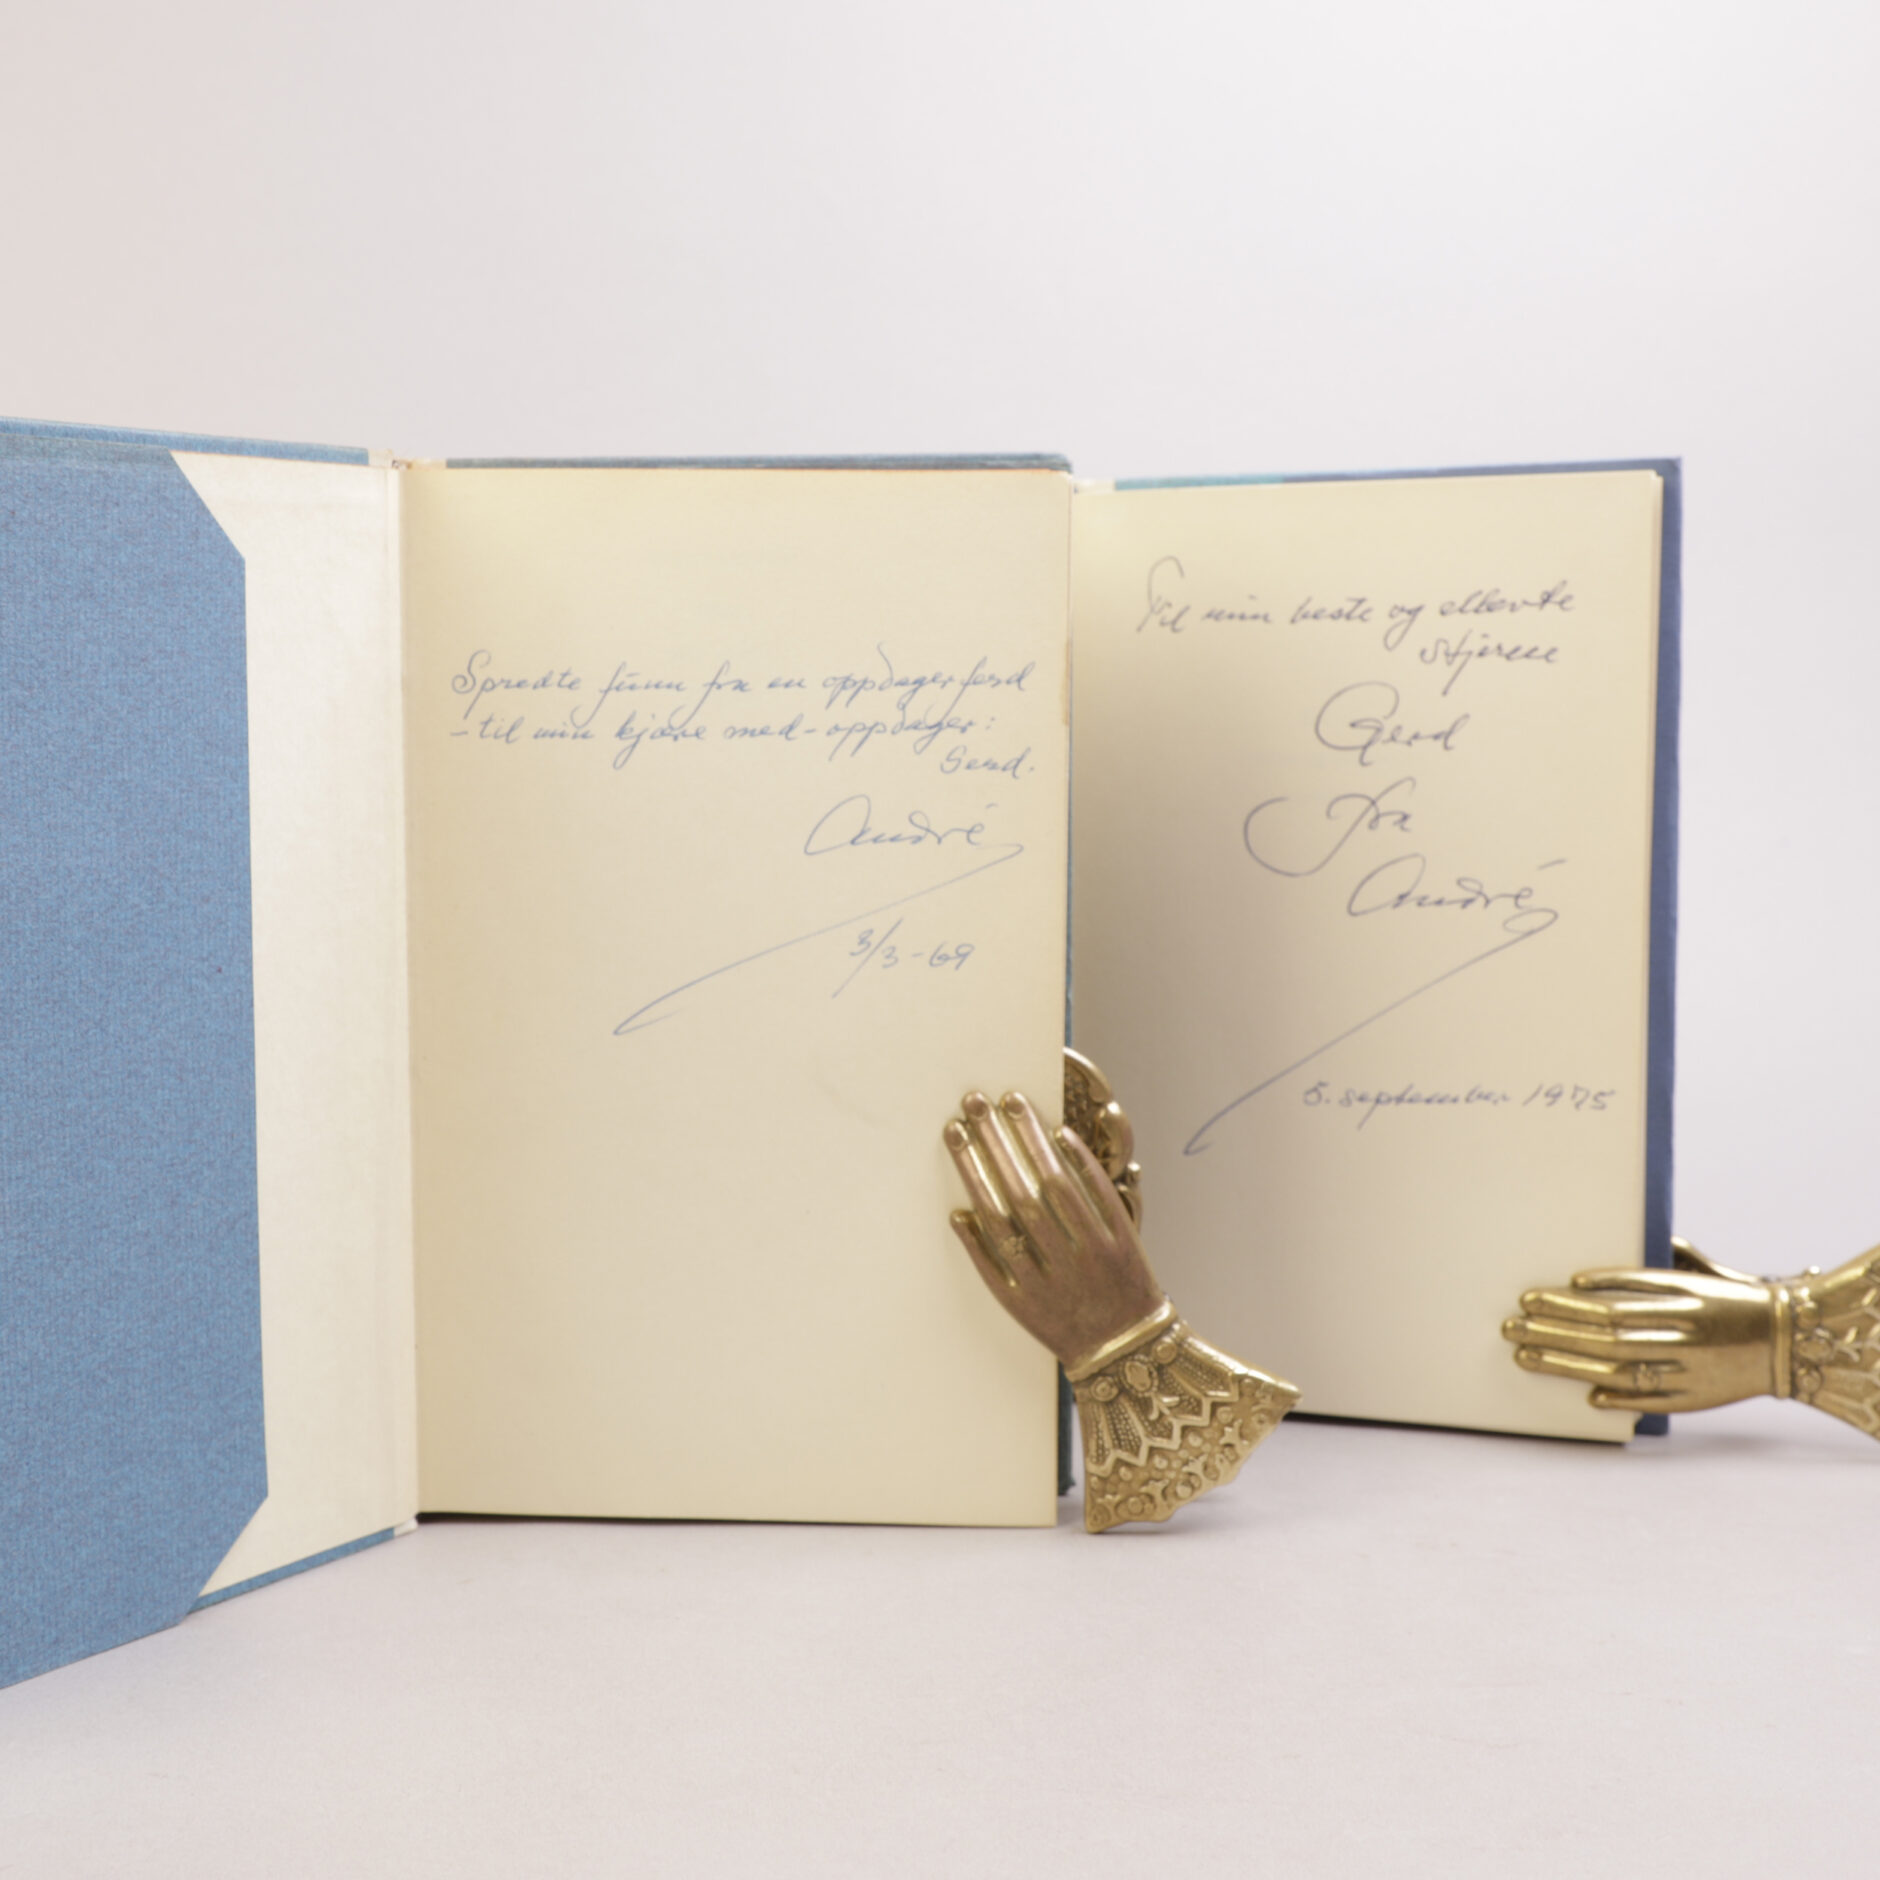 Spredte funn fra en oppdagerferd
- til min kjære med-oppdager:
Gerd.
André
3/3-69
Til min beste og ellevte
stjerne
Gerd
fra
André
5. september 1975